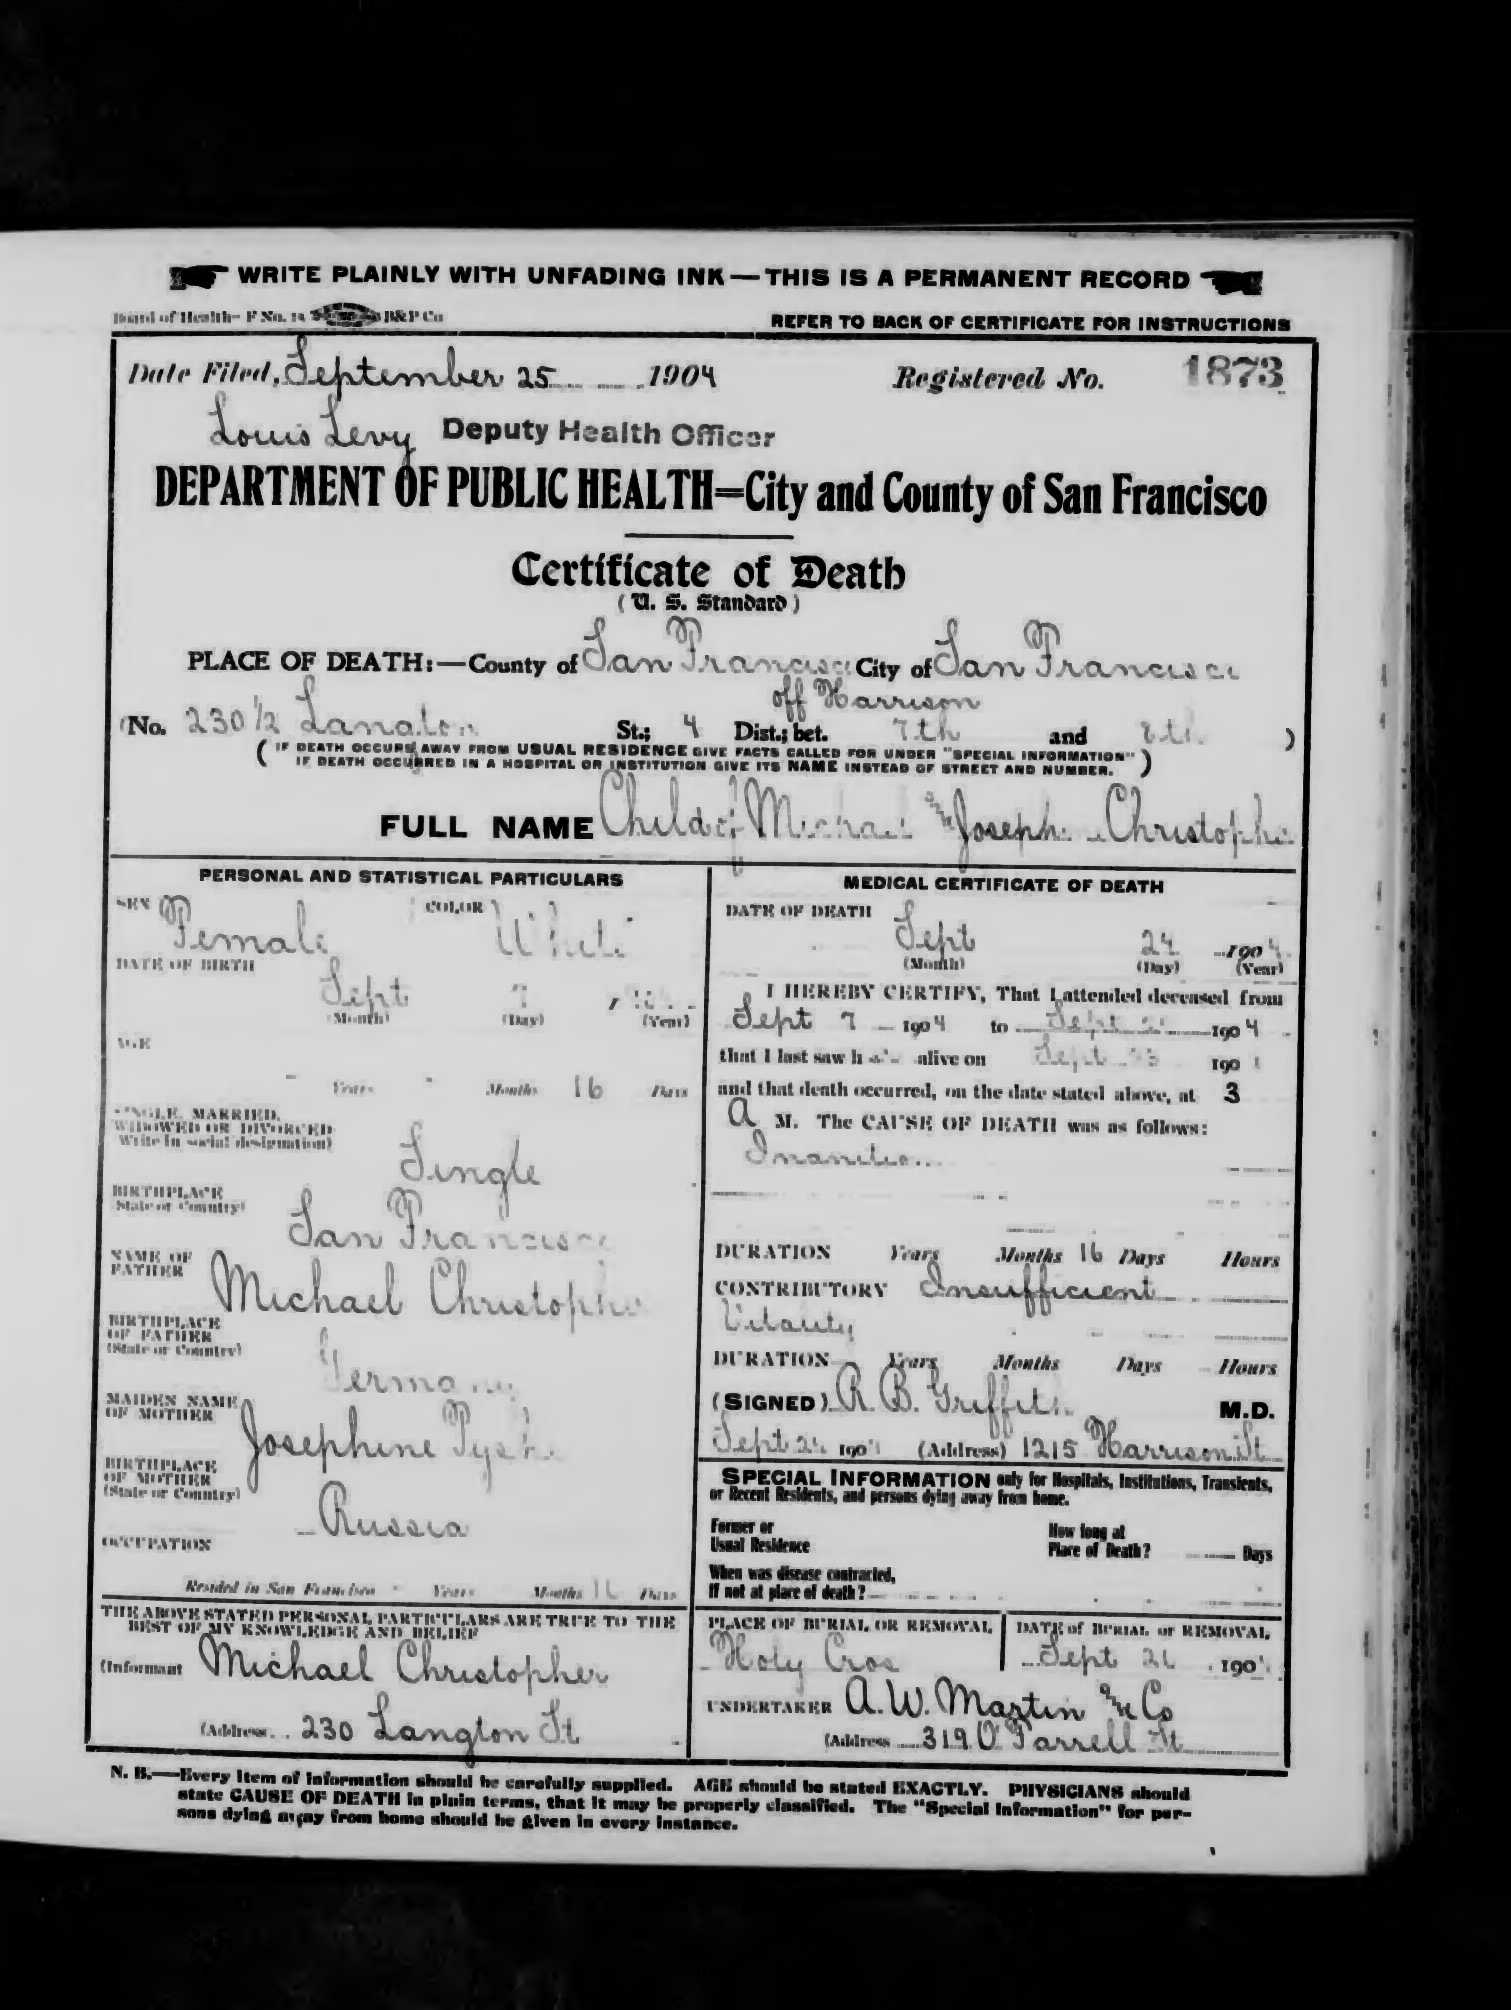 WRITE PLAINLY WITH UNFADING INK — THIS IS A PERMANENT RECORD
Board of Health- F No. B&P Co
REFER TO BACK OF CERTIFICATE FOR INSTRUCTIONS
Date Filed, September 25 1904 Registered No. 1873
Louis Levy Deputy Health Officer
DEPARTMENT OF PUBLIC HEALTH=City and County of San Francisco
Certificate of Death
(U. S. Standard)
PLACE OF DEATH:—County of San Francisco City of San Francisco
off Harrison
(No. 230 1/2 Langton St.; 4 Dist.; bet. 7th and 8th )
( IF DEATH OCCURS AWAY FROM USUAL RESIDENCE GIVE FACTS CALLED FOR UNDER "SPECIAL INFORMATION"
IF DEATH OCCURRED IN A HOSPITAL OR INSTITUTION GIVE ITS NAME INSTEAD OF STREET AND NUMBER. )
FULL NAME Child of Michael and Josephine Christopher
PERSONAL AND STATISTICAL PARTICULARS
SEX Female COLOR White
DATE OF BIRTH
Sept 7 , 
(Month) (Day) (Year)
AGE
Years Months 16 Days
SINGLE, MARRIED,
WIDOWED OR DIVORCED
Write in social designation)
Single
BIRTHPLACE
State or Country)
San Francisco
NAME OF
FATHER
Michael Christopher
BIRTHPLACE
OF FATHER
(State or Country)
Germany
MAIDEN NAME
OF MOTHER
Josephine
BIRTHPLACE
OF MOTHER
(State or Country)
Russia
OCCUPATION
Resided in San Francisco - Years Months 16 Days
THE ABOVE STATED PERSONAL PARTICULARS ARE TRUE TO THE
BEST OF MY KNOWLEDGE AND BELIEF
(Informant Michael Christopher
(Address 230 Langton St
MEDICAL CERTIFICATE OF DEATH
DATE OF DEATH
Sept 24 1904
(Month) (Day) (Year)
I HEREBY CERTIFY, That I attended deceased from
Sept 7 1904 to Sept 1904
that I last saw h alive on Sept 23 190
and that death occurred, on the date stated above, at 3
A M. The CAUSE OF DEATH was as follows:
Inanition
DURATION Years Months 16 Days Hours
CONTRIBUTORY Insufficient
Vitality
DURATION Years Months Days Hours
(SIGNED) R. B. Griffith M.D.
Sept 24 190 (Address) 1215 Harrison St
SPECIAL INFORMATION only for Hospitals, Institutions, Transients,
or Recent Residents, and persons dying away from home.
Former or
Usual Residence
How long at
Place of Death? Days
When was disease contracted,
If not at place of death?
PLACE OF BURIAL OR REMOVAL
Holy Cross
DATE of BURIAL or REMOVAL
Sept 26 190
UNDERTAKER A. W. Martin and Co
(Address 319 O'Farrell St
N. B.—Every item of information should be carefully supplied. AGE should be stated EXACTLY. PHYSICIANS should
state CAUSE OF DEATH in plain terms, that it may be properly classified. The "Special Information" for per-
sons dying away from home should be given in every instance.